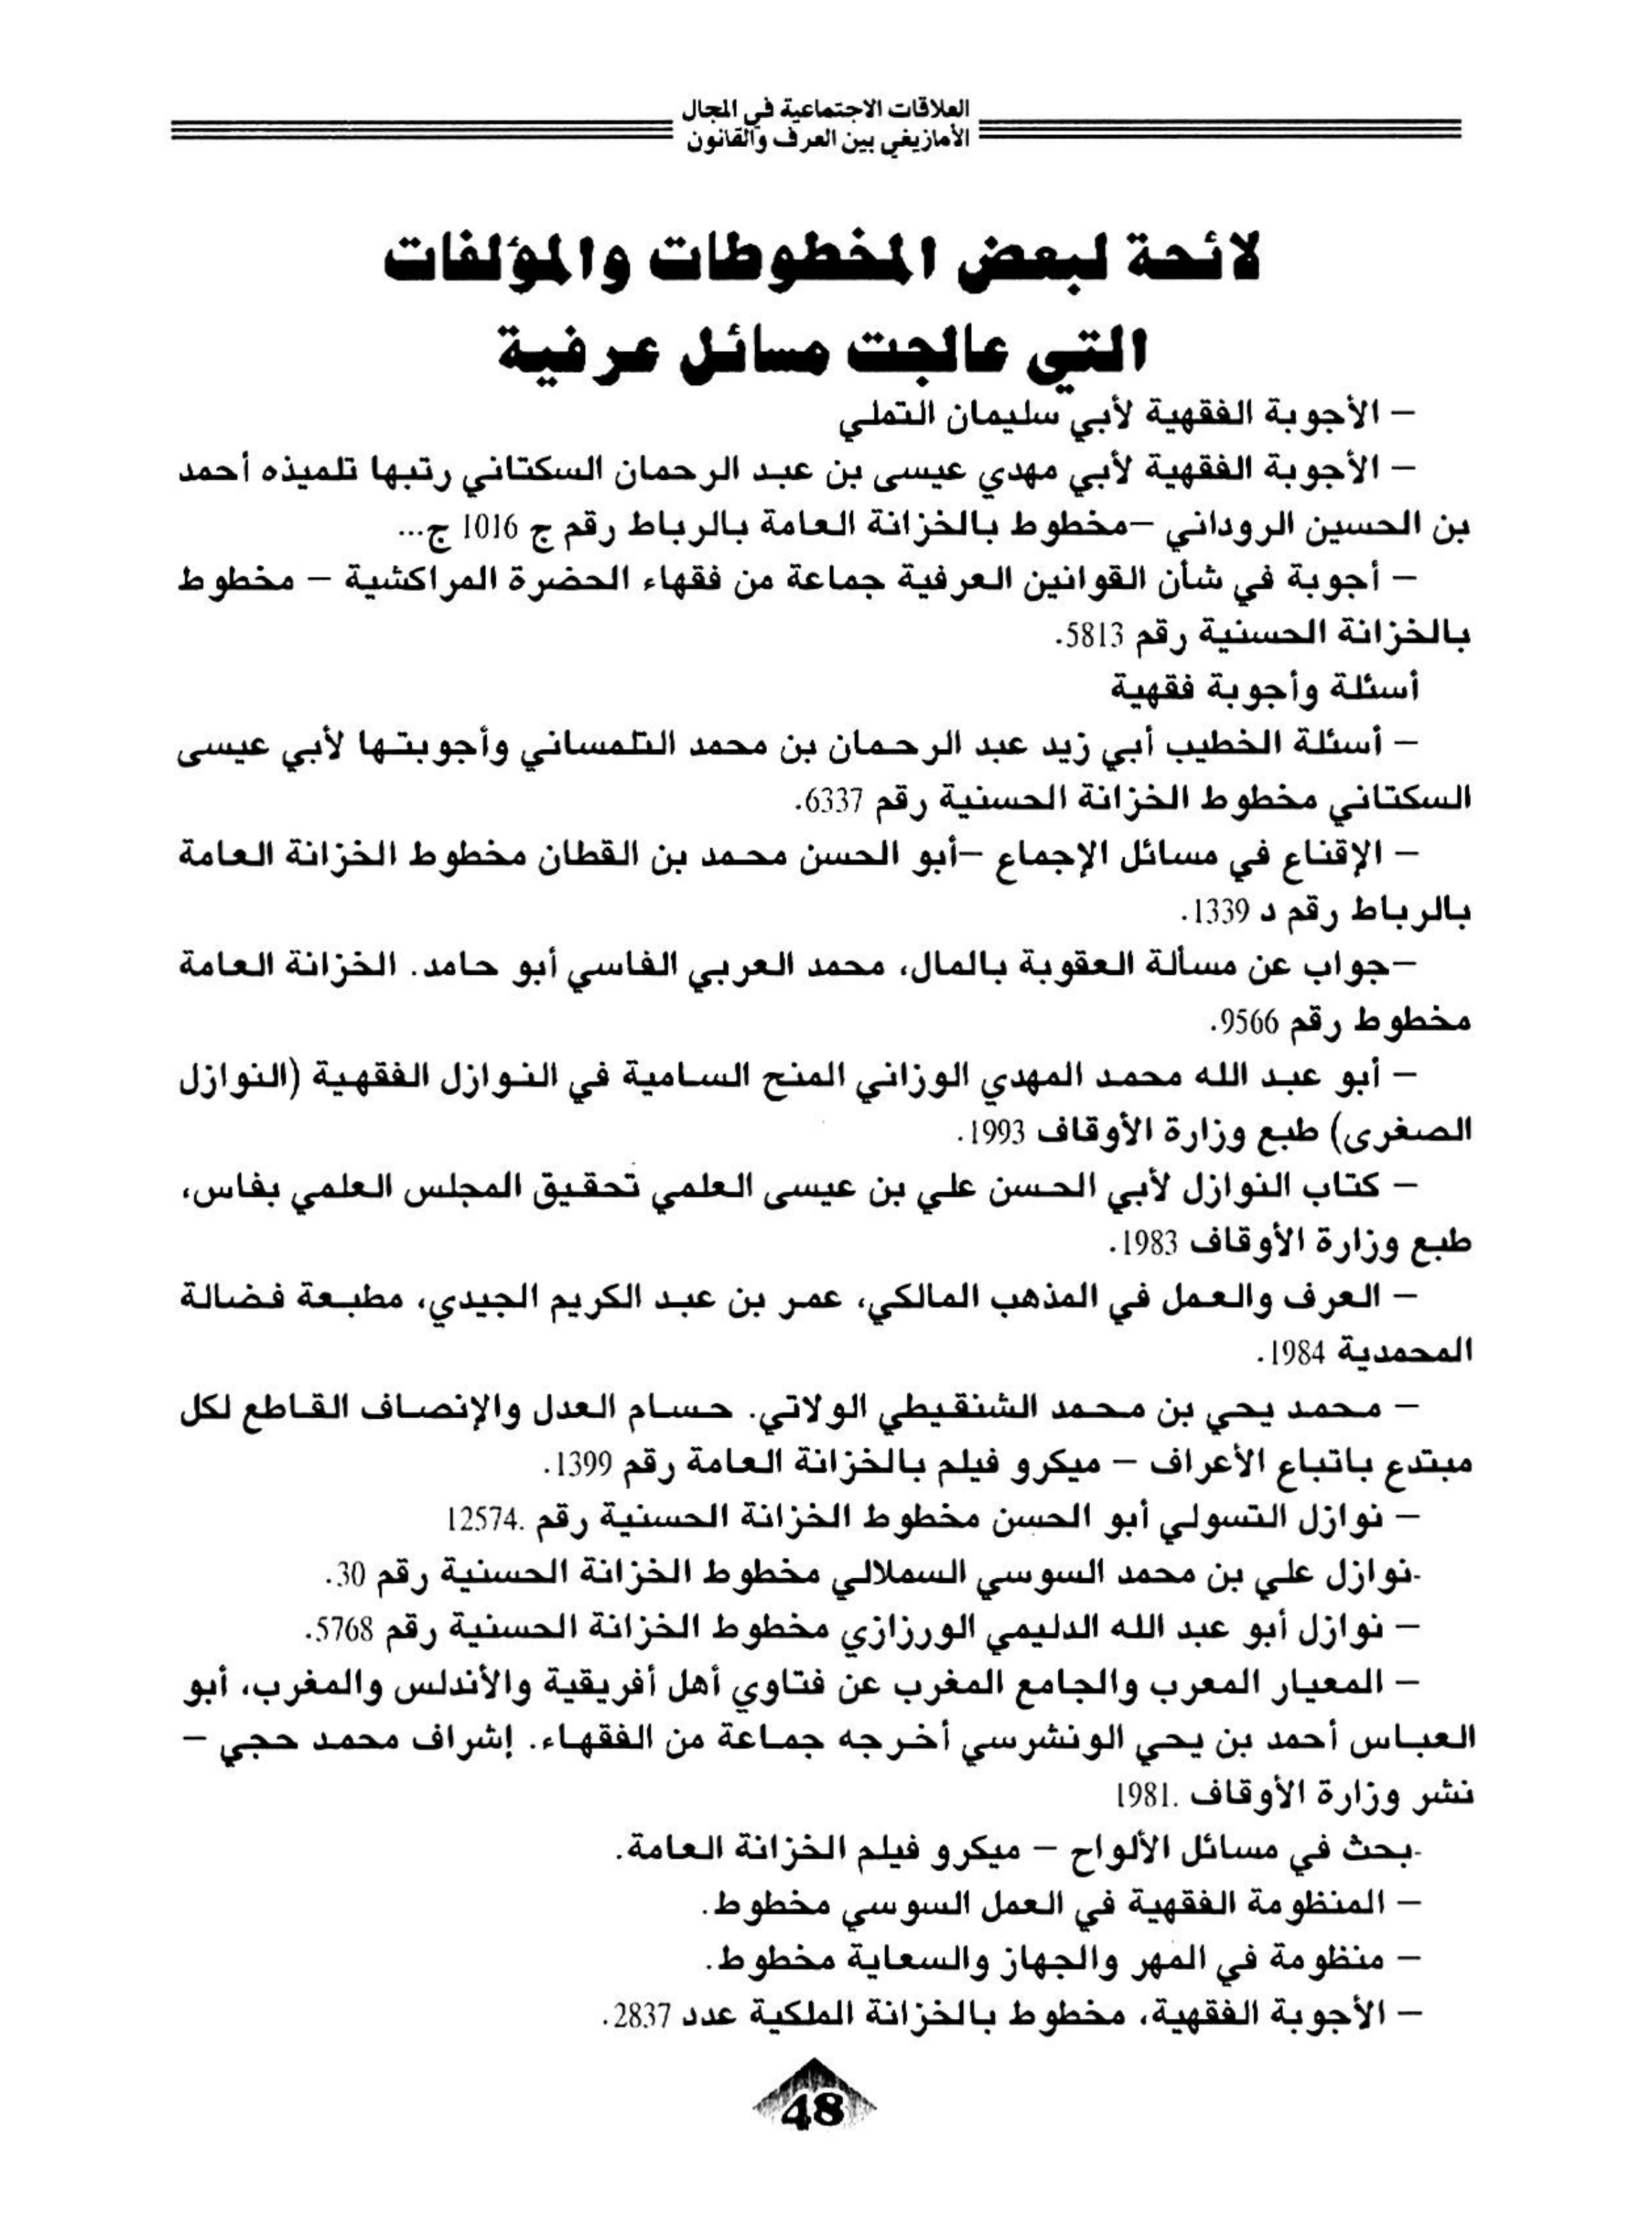 العلاقات الاجتماعية في المجال
الأمازيغي بين العرف والقانون
لائحة لبعض المخطوطات والمؤلفات
التي عالجت مسائل عرفية
– الأجوبة الفقهية لأبي سليمان التملي
– الأجوبة الفقهية لأبي مهدي عيسى بن عبد الرحمان السكتاني رتبها تلميذه أحمد
بن الحسين الروداني –مخطوط بالخزانة العامة بالرباط رقم ج 1016 ج...
– أجوبة في شأن القوانين العرفية جماعة من فقهاء الحضرة المراكشية – مخطوط
بالخزانة الحسنية رقم 5813.
أسئلة وأجوبة فقهية
– أسئلة الخطيب أبي زيد عبد الرحمان بن محمد التلمساني وأجوبتها لأبي عيسى
السكتاني مخطوط الخزانة الحسنية رقم 6337.
– الإقناع في مسائل الإجماع –أبو الحسن محمد بن القطان مخطوط الخزانة العامة
بالرباط رقم د 1339.
–جواب عن مسألة العقوبة بالمال، محمد العربي الفاسي أبو حامد. الخزانة العامة
مخطوط رقم 9566.
– أبو عبد الله محمد المهدي الوزاني المنح السامية في النوازل الفقهية (النوازل
الصغرى) طبع وزارة الأوقاف 1993.
– كتاب النوازل لأبي الحسن علي بن عيسى العلمي تحقيق المجلس العلمي بفاس،
طبع وزارة الأوقاف 1983.
– العرف والعمل في المذهب المالكي، عمر بن عبد الكريم الجيدي، مطبعة فضالة
المحمدية 1984.
– محمد يحي بن محمد الشنقيطي الولاتي. حسام العدل والإنصاف القاطع لكل
مبتدع باتباع الأعراف – ميكرو فيلم بالخزانة العامة رقم 1399.
– نوازل التسولي أبو الحسن مخطوط الخزانة الحسنية رقم .12574
-نوازل علي بن محمد السوسي السملالي مخطوط الخزانة الحسنية رقم 30.
– نوازل أبو عبد الله الدليمي الورزازي مخطوط الخزانة الحسنية رقم 5768.
– المعيار المعرب والجامع المغرب عن فتاوي أهل أفريقية والأندلس والمغرب، أبو
العباس أحمد بن يحي الونشرسي أخرجه جماعة من الفقهاء. إشراف محمد حجي –
نشر وزارة الأوقاف .1981
-بحث في مسائل الألواح – ميكرو فيلم الخزانة العامة.
– المنظومة الفقهية في العمل السوسي مخطوط.
– منظومة في المهر والجهاز والسعاية مخطوط.
– الأجوبة الفقهية، مخطوط بالخزانة الملكية عدد 2837.
48